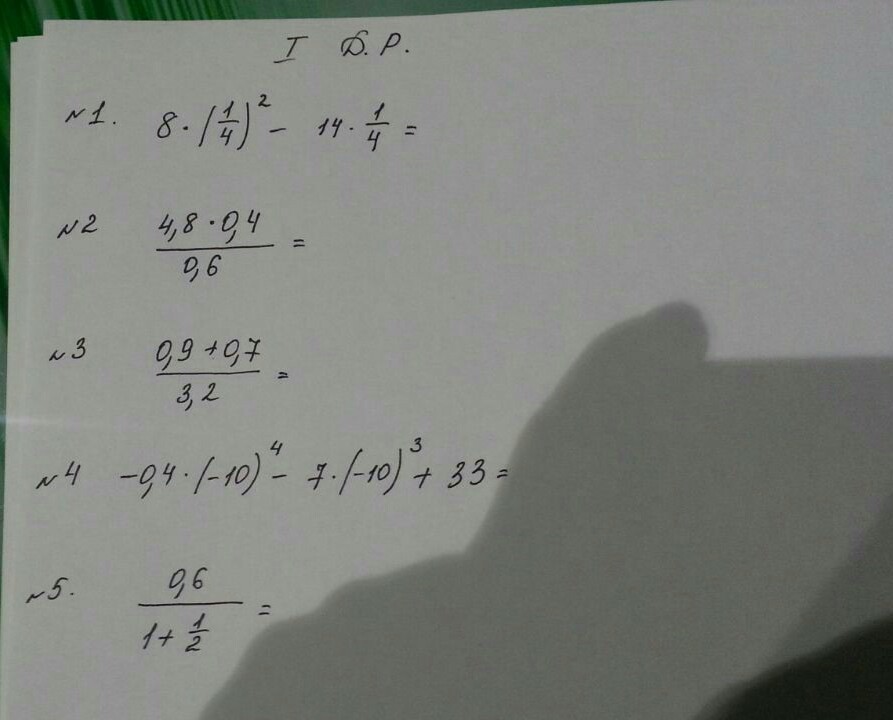 I Д.Р.
№1. 8·(1/4)² - 14·1/4 =
№2 4,8·0,4 / 0,6 =
№3 0,9+0,7 / 3,2 =
№4 -0,4·(-10)⁴ - 7·(-10)³ + 33 =
№5. 0,6 / 1+1/2 =